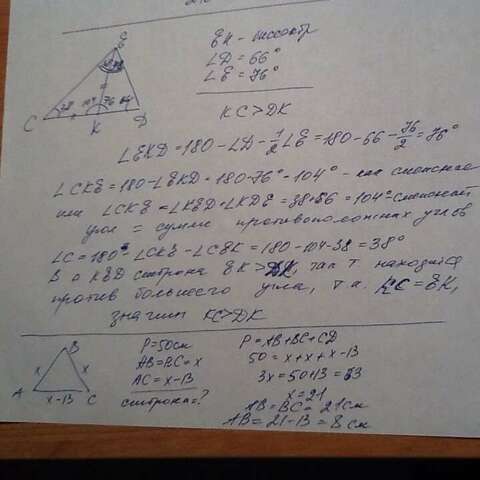 E
38° 104° 76 66
C K D
EK - биссектр
∠D = 66°
∠E = 76°
KC > DK
∠EKD = 180 - ∠D - 1/2 ∠E = 180 - 66 - 76/2 = 76°
∠CKE = 180 - ∠EKD = 180 - 76° = 104° - как смежные
или ∠CKE = ∠KED + ∠KDE = 38 + 66 = 104° - смежный
угол = сумме противоположных углов
∠C = 180° - ∠CKE - ∠CEK = 180 - 104 - 38 = 38°
В Δ KED сторона EK > DK, так т. находится
против большего угла, т.к. KC = EK,
значит KC > DK
B
x x
A x-13 C
P = 50см
AB = BC = x
AC = x-13
сторона = ?
P = AB + BC + CD
50 = x + x + x - 13
3x = 50 + 13 = 63
x = 21
AB = BC = 21 см
AB = 21 - 13 = 8 см